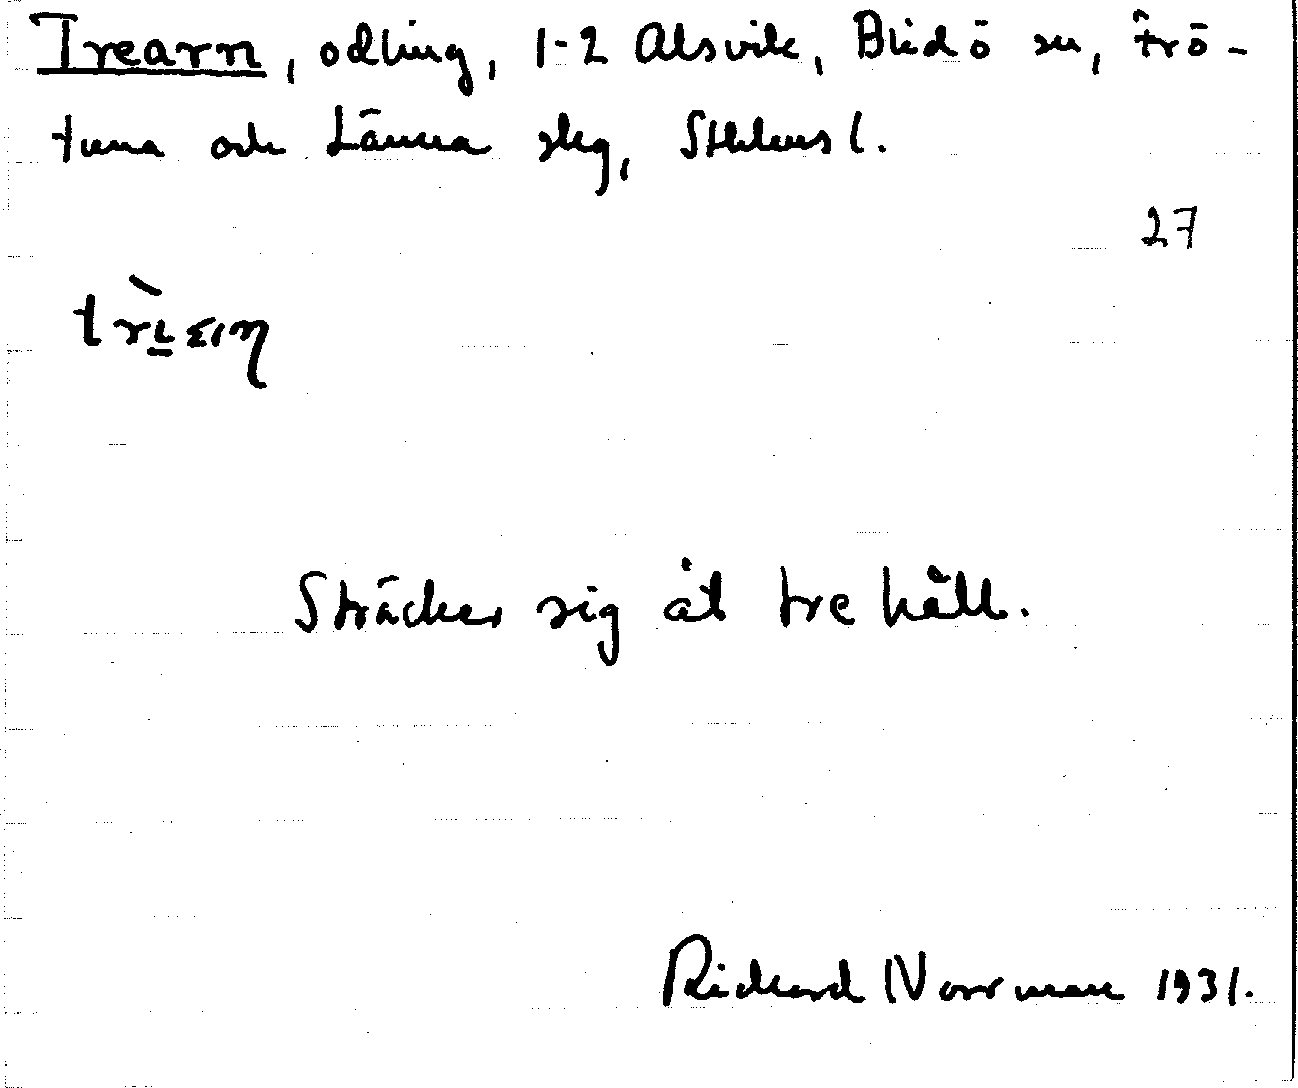 Trearn, odling, 1-2 Alsvik, Blidö sn, Frö-
tuna och Länna skg, Sthlms l.
27
Sträcker sig åt tre håll.
Rickard Norrman 1931.